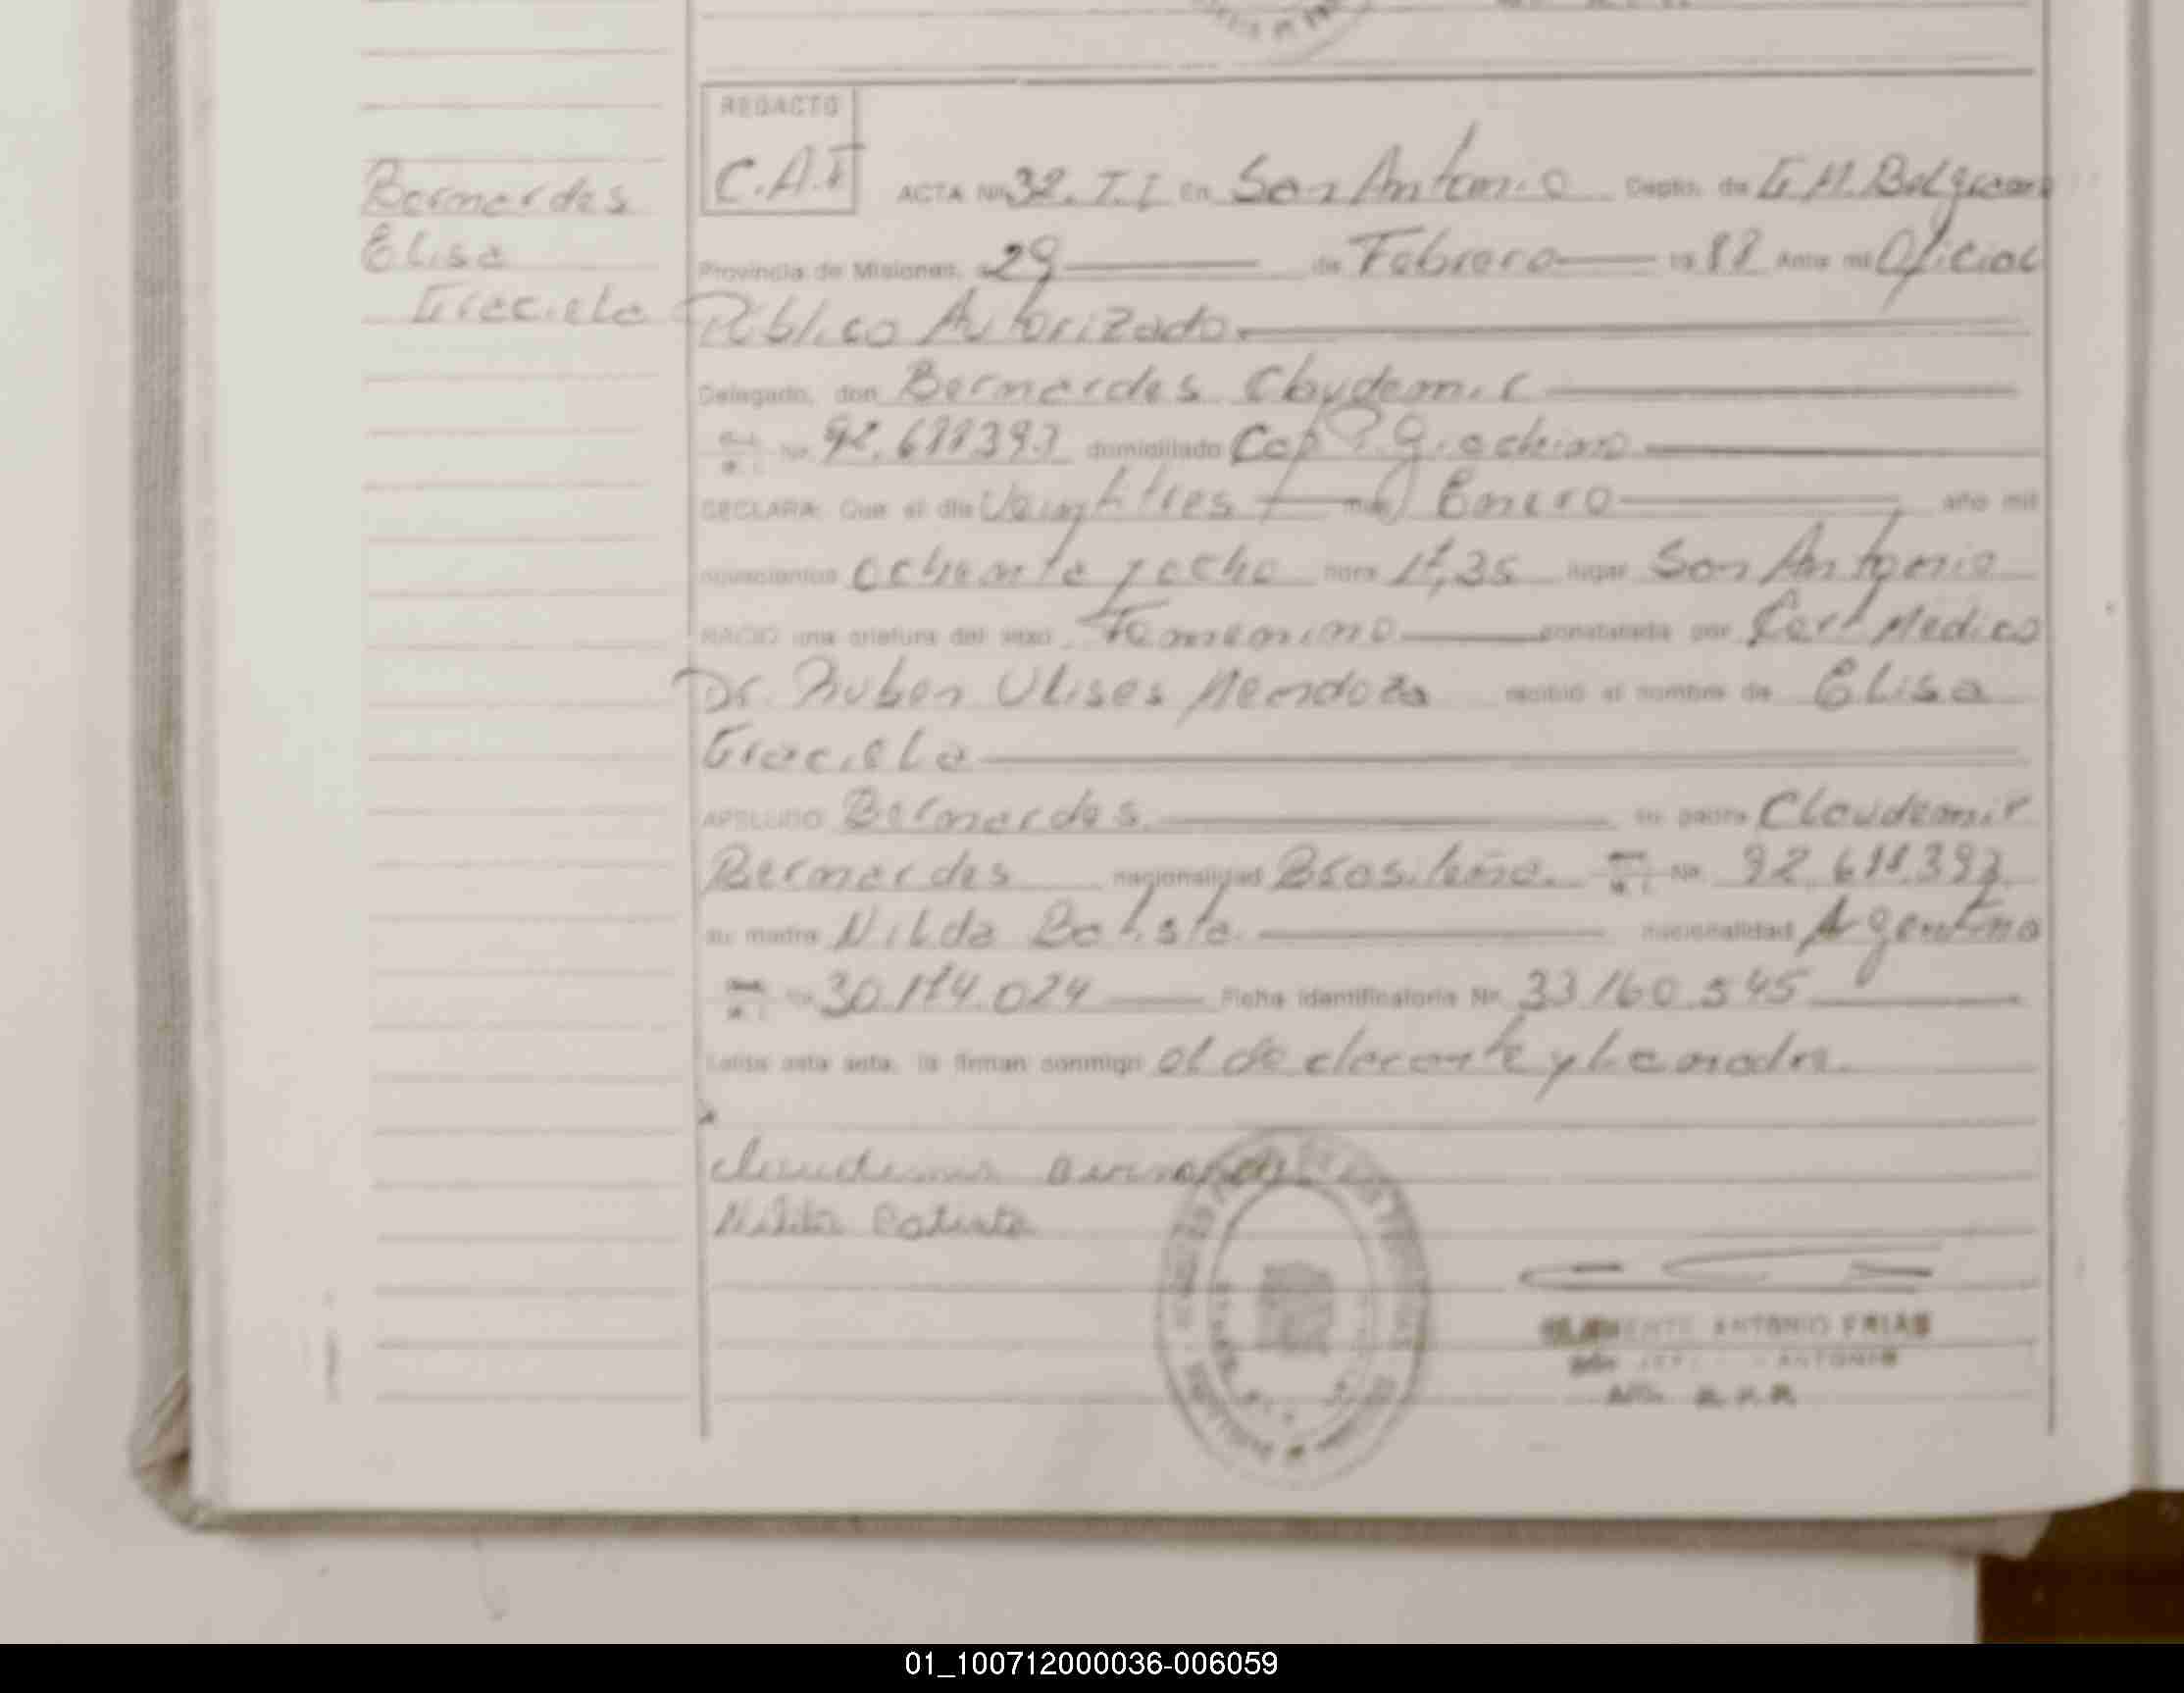 REDACTO
C.A.F
ACTA Nº 32. T. I En San Antonio Depto. de G. M. Belgrano
Bernardes
Elisa
Graciela
Provincia de Misiones, a 29 de Febrero 19 88 Ante mi Oficial
Público Autorizado.
Delegado, don Bernardes Claudemir
Nº domiciliado Cap
DECLARA: Que el día Veintitres mes Enero año mil
novecientos ochenta y ocho hora lugar San Antonio
NACIO una criatura del sexo Femenino constatada por Cert Medico
Dr. Ruben Ulises Mendoza recibió el nombre de Elisa
Graciela
APELLIDO Bernardes su padre Claudemir
Bernardes nacionalidad Brasileña. Nº
su madre Nilda Batista nacionalidad Argentina
Nº Ficha identificatoria Nº 33160.545
Leída esta acta, la firman conmigo el declarante y la madre.
Claudemir Bernardes
Nilda Batista
CLEMENTE ANTONIO FRIAS
ANTONIO
01_100712000036-006059